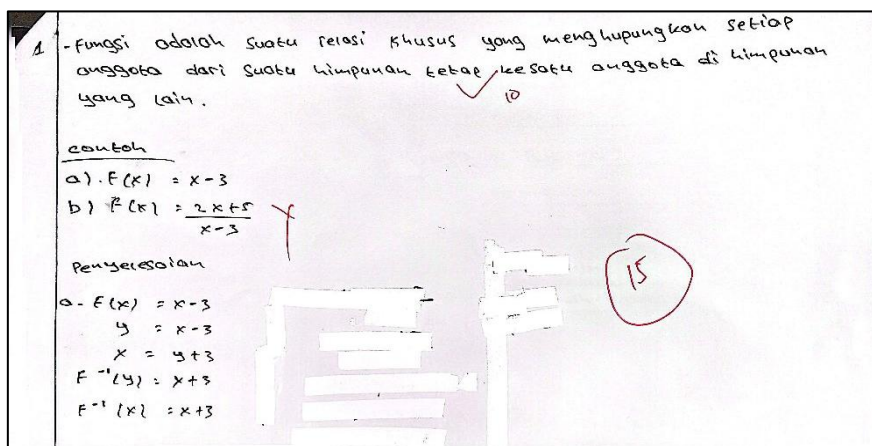 1 - Fungsi adalah suatu relasi khusus yang menghupungkan setiap
anggota dari suatu himpunan tetap kesatu anggota di himpunan
yang lain.
10
contoh
a). F(x) = x-3
b) F(x) = 2x+5
x-3
15
Penyelesaian
a- F(x) = x-3
y = x-3
x = y+3
F⁻¹(y) = x+3
F⁻¹(x) = x+3